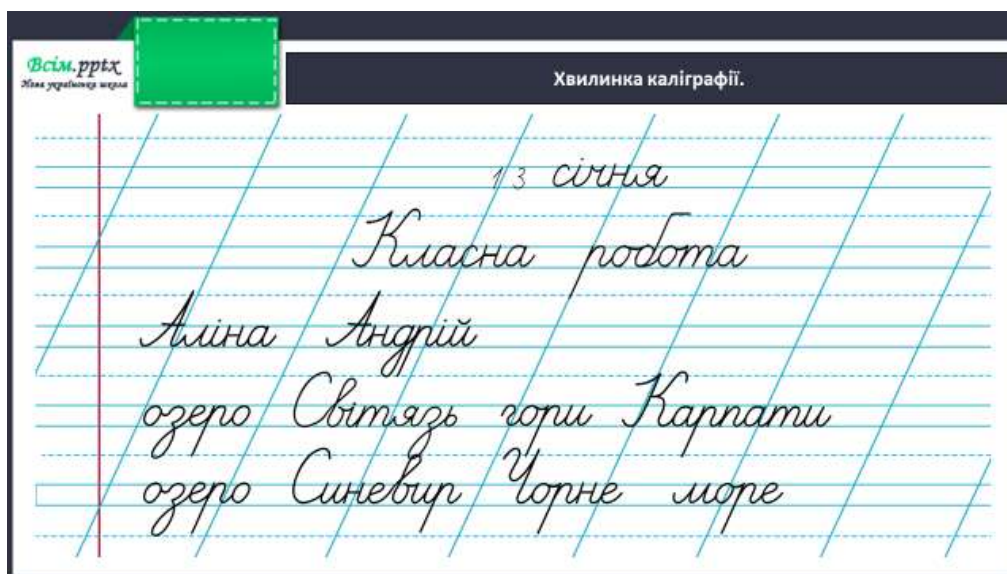 Всім.pptx
Нова українська школа
Хвилинка каліграфії.
13 січня
Класна робота
Аліна Андрій
озеро Світязь гори Карпати
озеро Синевир Чорне море